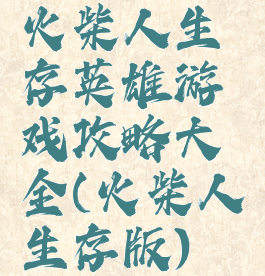 火柴人生
存英雄游
戏攻略大
全(火柴人
生存版)